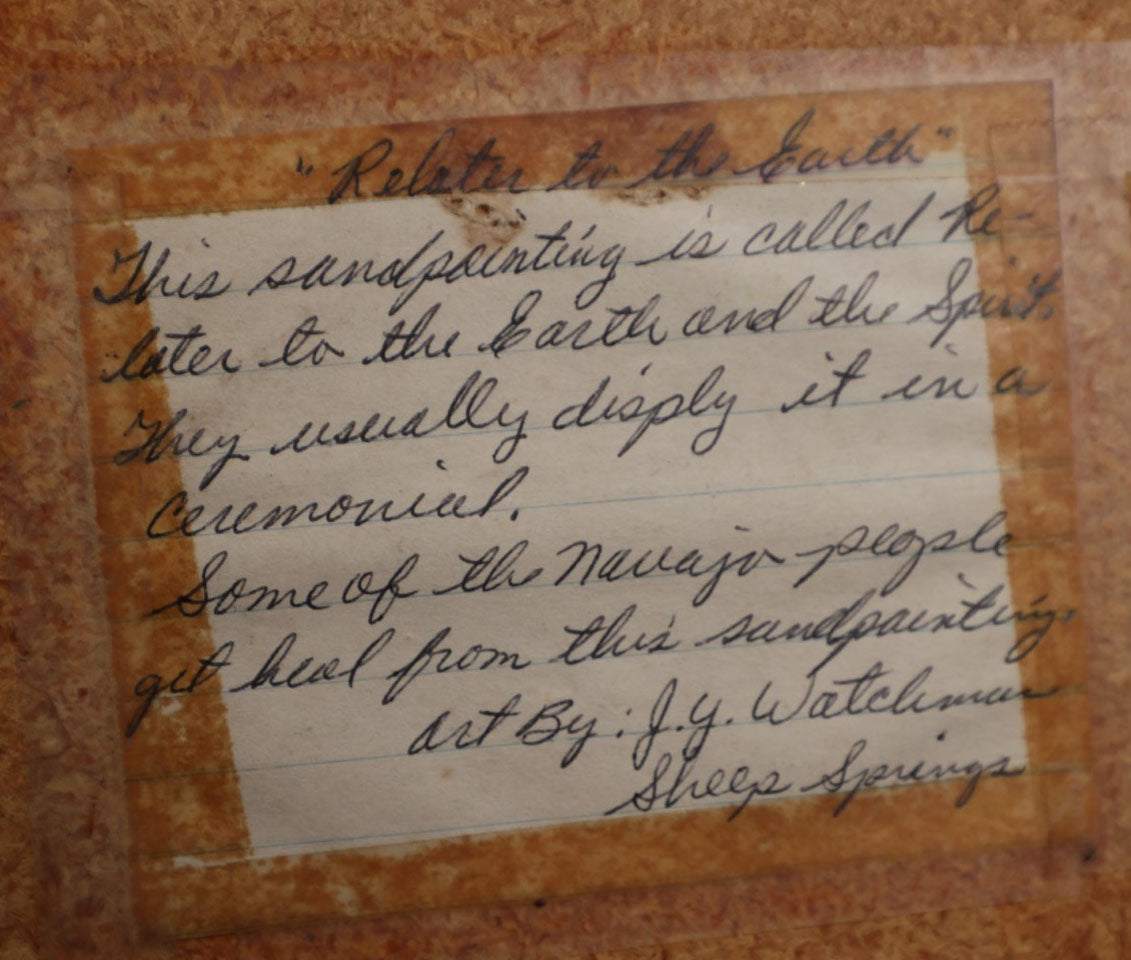 "Relater to the Earth"
This sandpainting is called Re-
later to the Earth and the Spirit.
They usually disply it in a
ceremonial.
Some of the Navajo people
get heal from this sandpainting.
Art By: J.Y. Watchman
Sheep Springs